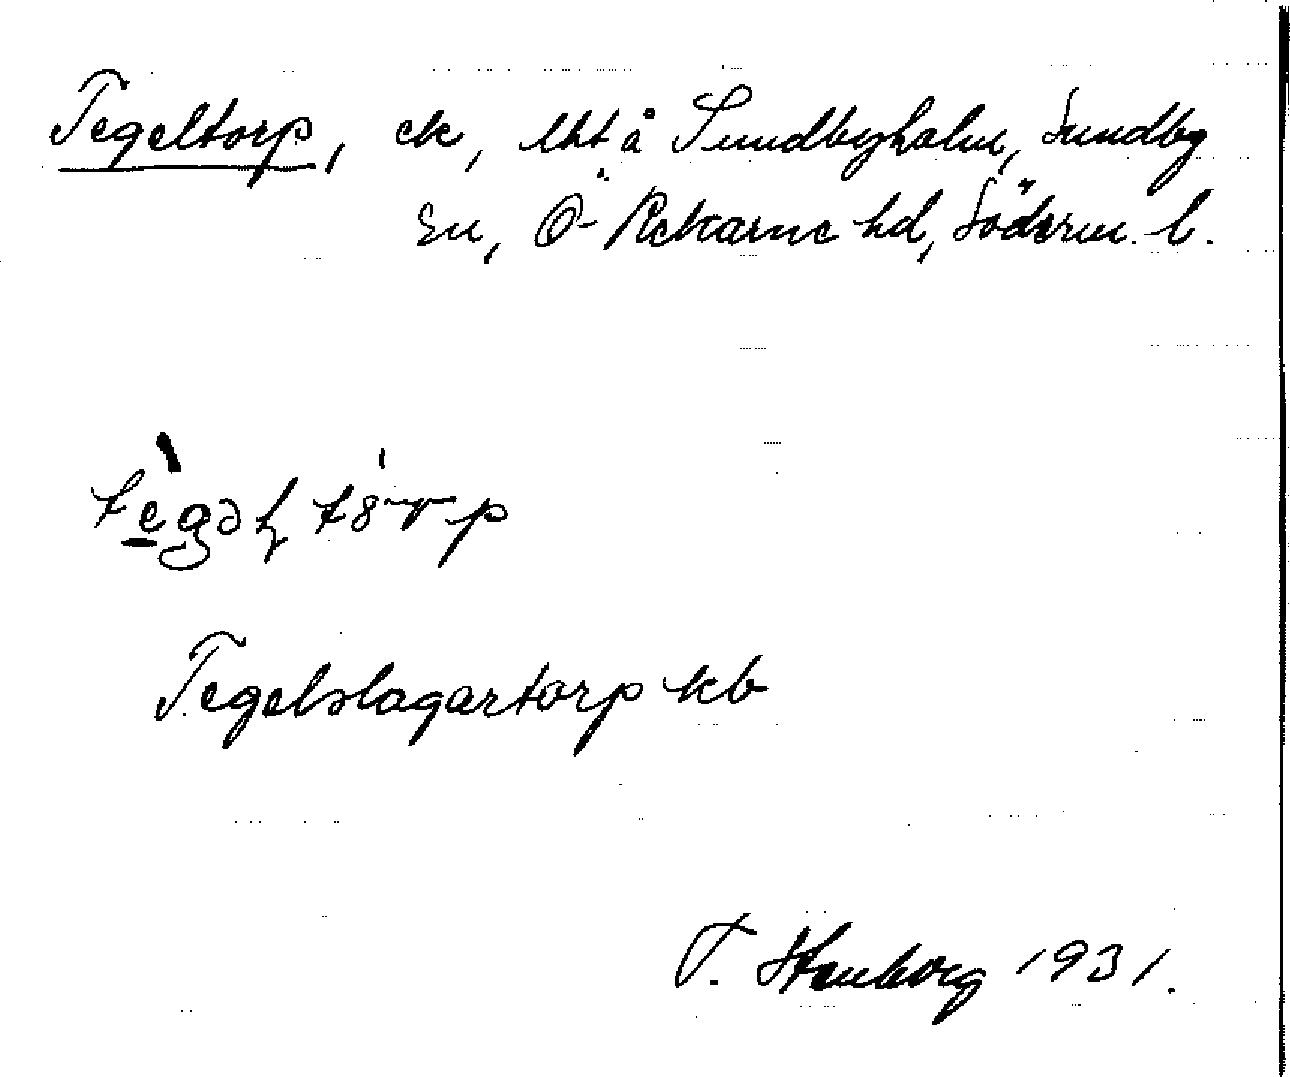 Tegeltorp, ck, lht å Sundbyholm, Sundby
sn, Ö. Rekarne hd, Söderm. l.
Tegelslagartorp kb
T. Stenborg 1931.